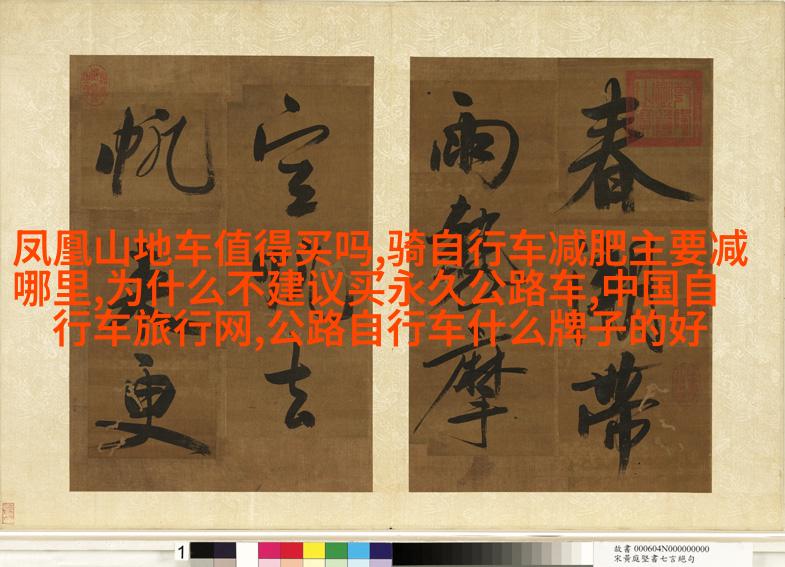 凤凰山地车值得买吗,骑自行车减肥主要减
哪里,为什么不建议买永久公路车,中国自
行车旅行网,公路自行车什么牌子的好
春帶
雨摩
空去
帆更
1
故書 000604N000000000
宋黃庭堅書七言絕句